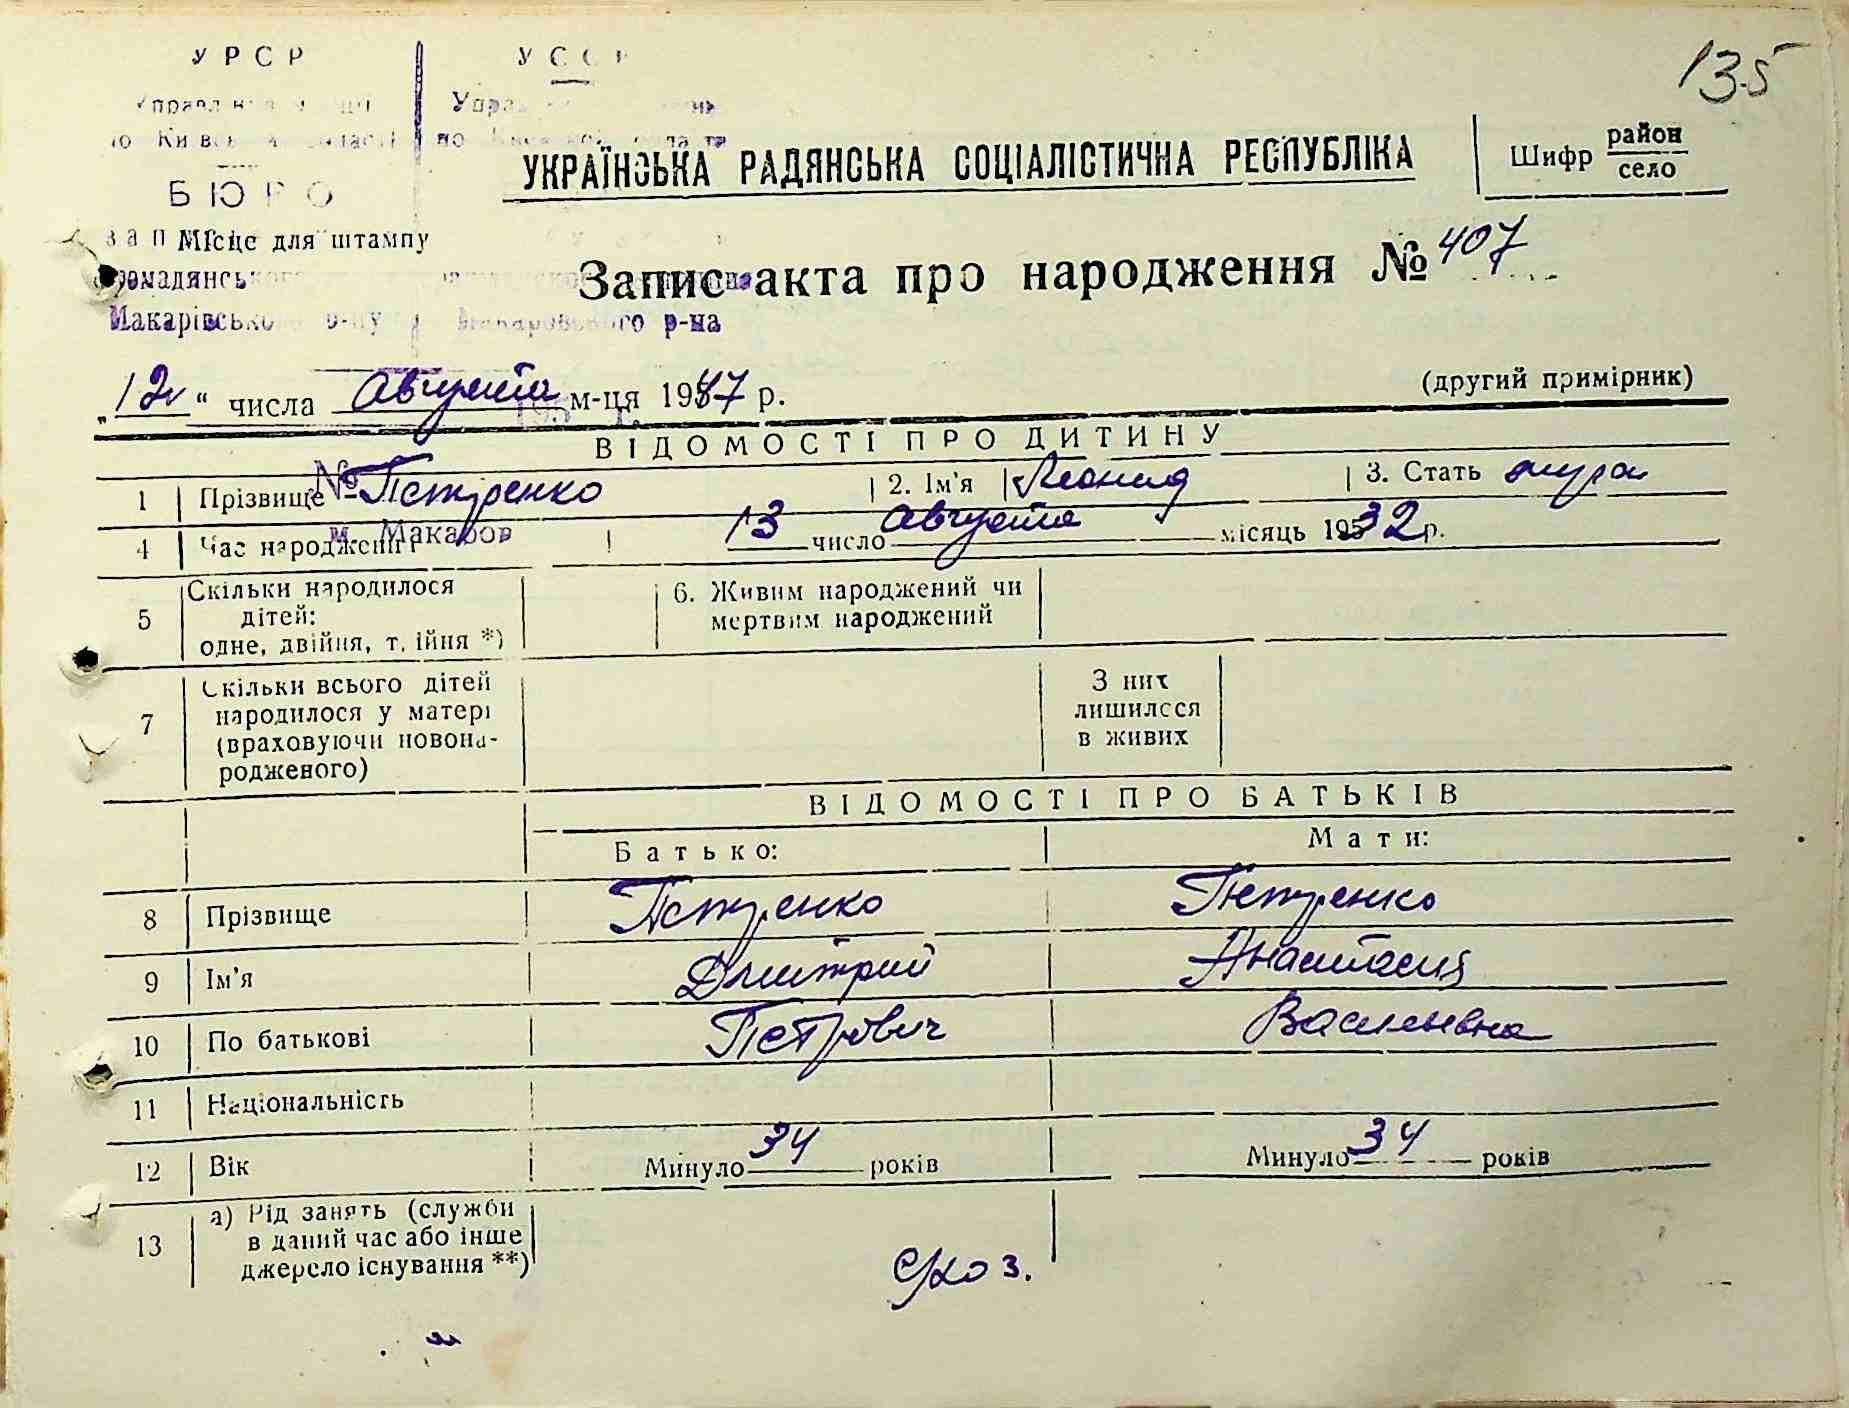 135
УРСР УССР
БЮРО
УКРАЇНСЬКА РАДЯНСЬКА СОЦІАЛІСТИЧНА РЕСПУБЛІКА
Шифр район
село
Місце для штампу
Запис акта про народження № 407
Макарівського р-ну Макаровского р-на
"12" числа Августа м-ця 1947 р.
(другий примірник)
ВІДОМОСТІ ПРО ДИТИНУ
1 Прізвище Петренко 2. Ім'я Леонид 3. Стать муж
№
4 Час народження 13 число Августа місяць 1932 р.
м. Макаров
5 Скільки народилося дітей: одне, двійня, трійня *)
6. Живим народжений чи мертвим народжений
7 Скільки всього дітей народилося у матері (враховуючи новонародженого)
З них лишилося в живих
ВІДОМОСТІ ПРО БАТЬКІВ
Батько: Мати:
8 Прізвище Петренко Петренко
9 Ім'я Дмитрий Анастасия
10 По батькові Петрович Васильевна
11 Національність
12 Вік Минуло 34 років Минуло 34 років
13 а) Рід занять (служби в даний час або інше джерело існування **)